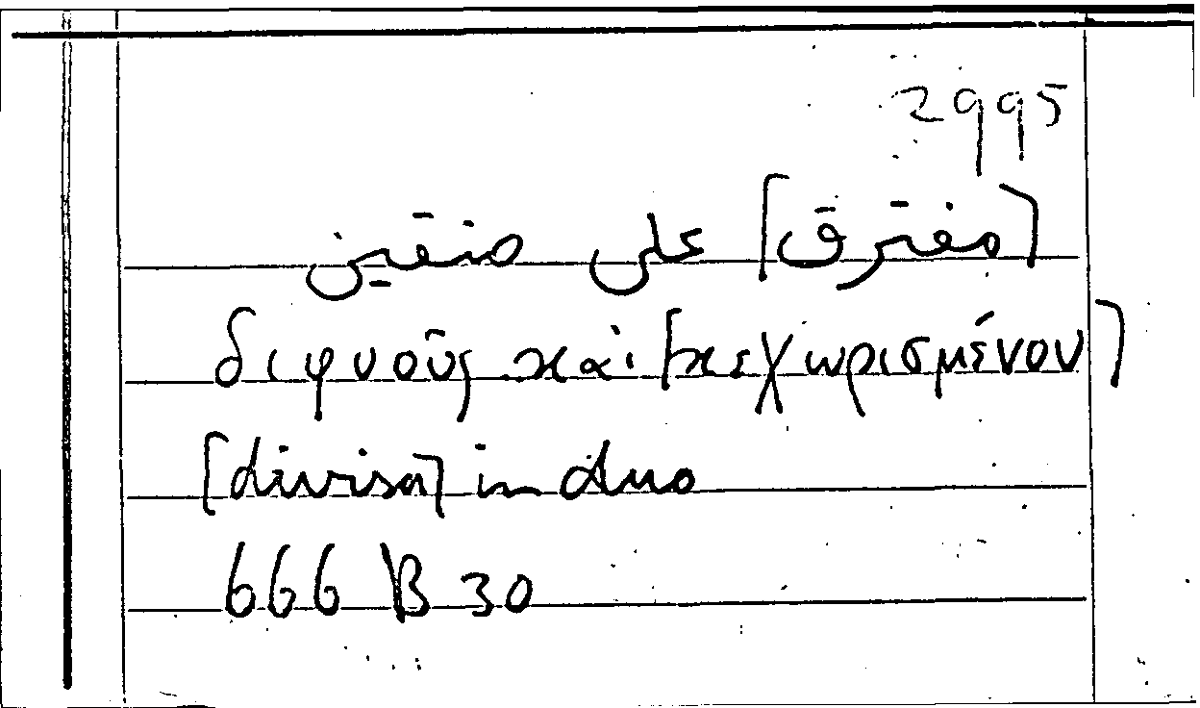 2995
[مفترق] على صنفين
διφυοῦς καὶ [κεχωρισμένου]
[divisa] in duo
666 B 30